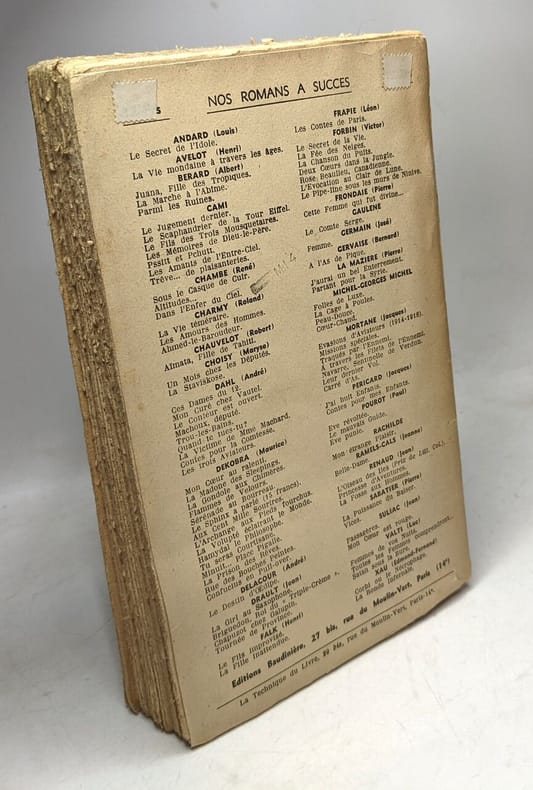 S
NOS ROMANS A SUCCES
ANDARD (Louis)
Le Secret de l'Idole.
AVELOT (Henri)
La Vie mondaine à travers les âges.
BERARD (Albert)
Juana, Fille des Tropiques.
La Marche à l'Abîme.
Parmi les Ruines.
CAMI
Le Jugement dernier.
Le Scaphandrier de la Tour Eiffel.
Le Fils des Trois Mousquetaires.
Les Mémoires de Dieu-le-Père.
Pssitt et Pchutt.
Les Amants de l'Entre-Ciel.
Trêve... de plaisanteries.
CHAMBE (René)
Sous le Casque de Cuir.
Altitudes...
Dans l'Enfer du Ciel.
CHARMY (Roland)
La Vie téméraire.
Les Amours des Hommes.
Ahmed-le-Baroudeur.
CHAUVELOT (Robert)
Aimata, Fille de Tahiti.
CHOISY (Maryse)
Un Mois chez les Députés.
La Staviskose.
DAHL (André)
Ces Dames du 12.
Mon Curé chez Vautel.
Le Conteur est ouvert.
Machoux, député.
Trou-les-Bains.
Quand le tues-tu?
La Victime de Mme Machard.
Contes pour la Comtesse.
Les trois Aviateurs.
DEKOBRA (Maurice)
Mon Cœur au ralenti.
La Madone des Sleepings.
La Gondole aux Chimères.
Flammes de Velours.
Sérénade au Bourreau.
Le Sphinx a parlé (15 francs).
Aux Cent Mille Sourires.
L'Archange aux Pieds fourchus.
La Volupté éclairant le Monde.
Hamydal le Philosophe.
Tu seras Courtisane.
Minuit, Place Pigalle.
La Prison des Rêves.
Rue des Bouches Peintes.
Confucius en Pull-over.
DELACOUR (André)
Le Destin d'Œdipe.
DRAULT (Jean)
La Girl au Saxophone.
Briguedon, Roi du « Triple-Crème ».
Chapuzot chez Galupin.
Tournée de Province.
FALK (Henri)
Le Fils improvisé.
La Fille inattendue.
FRAPIE (Léon)
Les Contes de Paris.
FORBIN (Victor)
Le Secret de la Vie.
La Fée des Neiges.
La Chanson du Puits.
Deux Cœurs dans la Jungle.
Rose Beaulieu, Canadienne.
L'Evocation au Clair de Lune.
Le Pipe-line sous les murs de Ninive.
FRONDAIE (Pierre)
Cette Femme qui fut divine...
GAULENE
Le Comte Serge.
GERMAIN (José)
Femme.
GERVAISE (Bernard)
A l'As de Pique.
LA MAZIERE (Pierre)
J'aurai un bel Enterrement.
Partant pour la Syrie.
MICHEL-GEORGES MICHEL
Folles de Luxe.
La Cage à Poules.
Peau-Douce.
Cœur-Chaud.
MORTANE (Jacques)
Evasions d'Aviateurs (1914-1918).
Missions spéciales.
Traqués par l'Ennemi.
A travers les Filets de l'Ennemi.
Navarre, Sentinelle de Verdun.
Leur dernier Vol.
Carré d'As.
PERICARD (Jacques)
J'ai huit Enfants.
Contes pour mes Enfants.
POUROT (Paul)
Eve révoltée.
Le mauvais Guide.
Eve punie.
RACHILDE
Mon étrange Plaisir.
RAMELS-CALS (Jeanne)
Belle-Dame.
RENAUD (Jean)
L'Oiseau des Iles (Prix de Litt. Col.).
Princesse d'Aventures.
La Fosse aux Hommes.
SABATIER (Pierre)
La Puissance du Baiser.
Vices.
SULIAC (Jean)
Passagères.
Mon Cœur est rouge.
VALTI (Luc)
Femmes de vos Nuits.
Toutes les Femmes comprendront...
Satan sous la Bure.
XAU (Edmond-Fernand)
Corbi ou le Nécrophage.
La Ronde infernale.
Editions Baudinière, 27 bis, rue du Moulin-Vert, Paris (14e)
La Technique du Livre, 29 bis, rue du Moulin-Vert, Paris-14e.